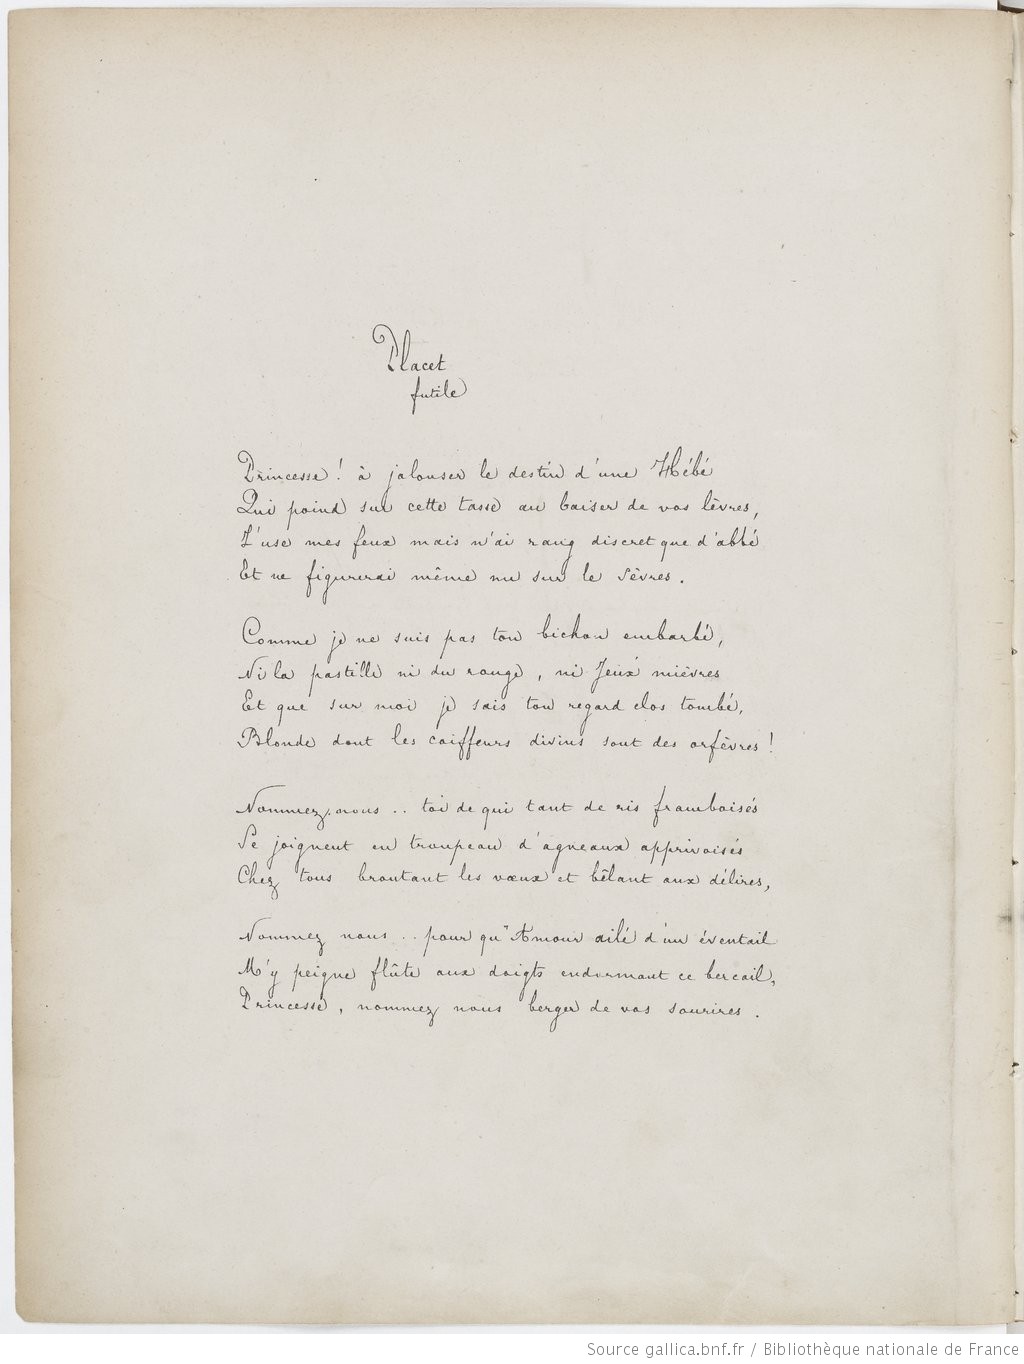 Placet
futile
Princesse ! à jalouser le destin d'une Hébé
Qui poind sur cette tasse au baiser de vos lèvres,
J'use mes feux mais n'ai rang discret que d'abbé
Et ne figurerai même nu sur le Sèvres.
Comme je ne suis pas ton bichon embarbé,
Ni la pastille ni du rouge, ni Jeux mièvres
Et que sur moi je sais ton regard clos tombé,
Blonde dont les coiffeurs divins sont des orfèvres !
Nommez-nous .. toi de qui tant de ris framboisés
Se joignent en troupeau d'agneaux apprivoisés
Chez tous broutant les vœux et bêlant aux délires,
Nommez nous .. pour qu'Amour ailé d'un éventail
M'y peigne flûte aux doigts endormant ce bercail,
Princesse, nommez nous berger de vos sourires.
Source gallica.bnf.fr / Bibliothèque nationale de France